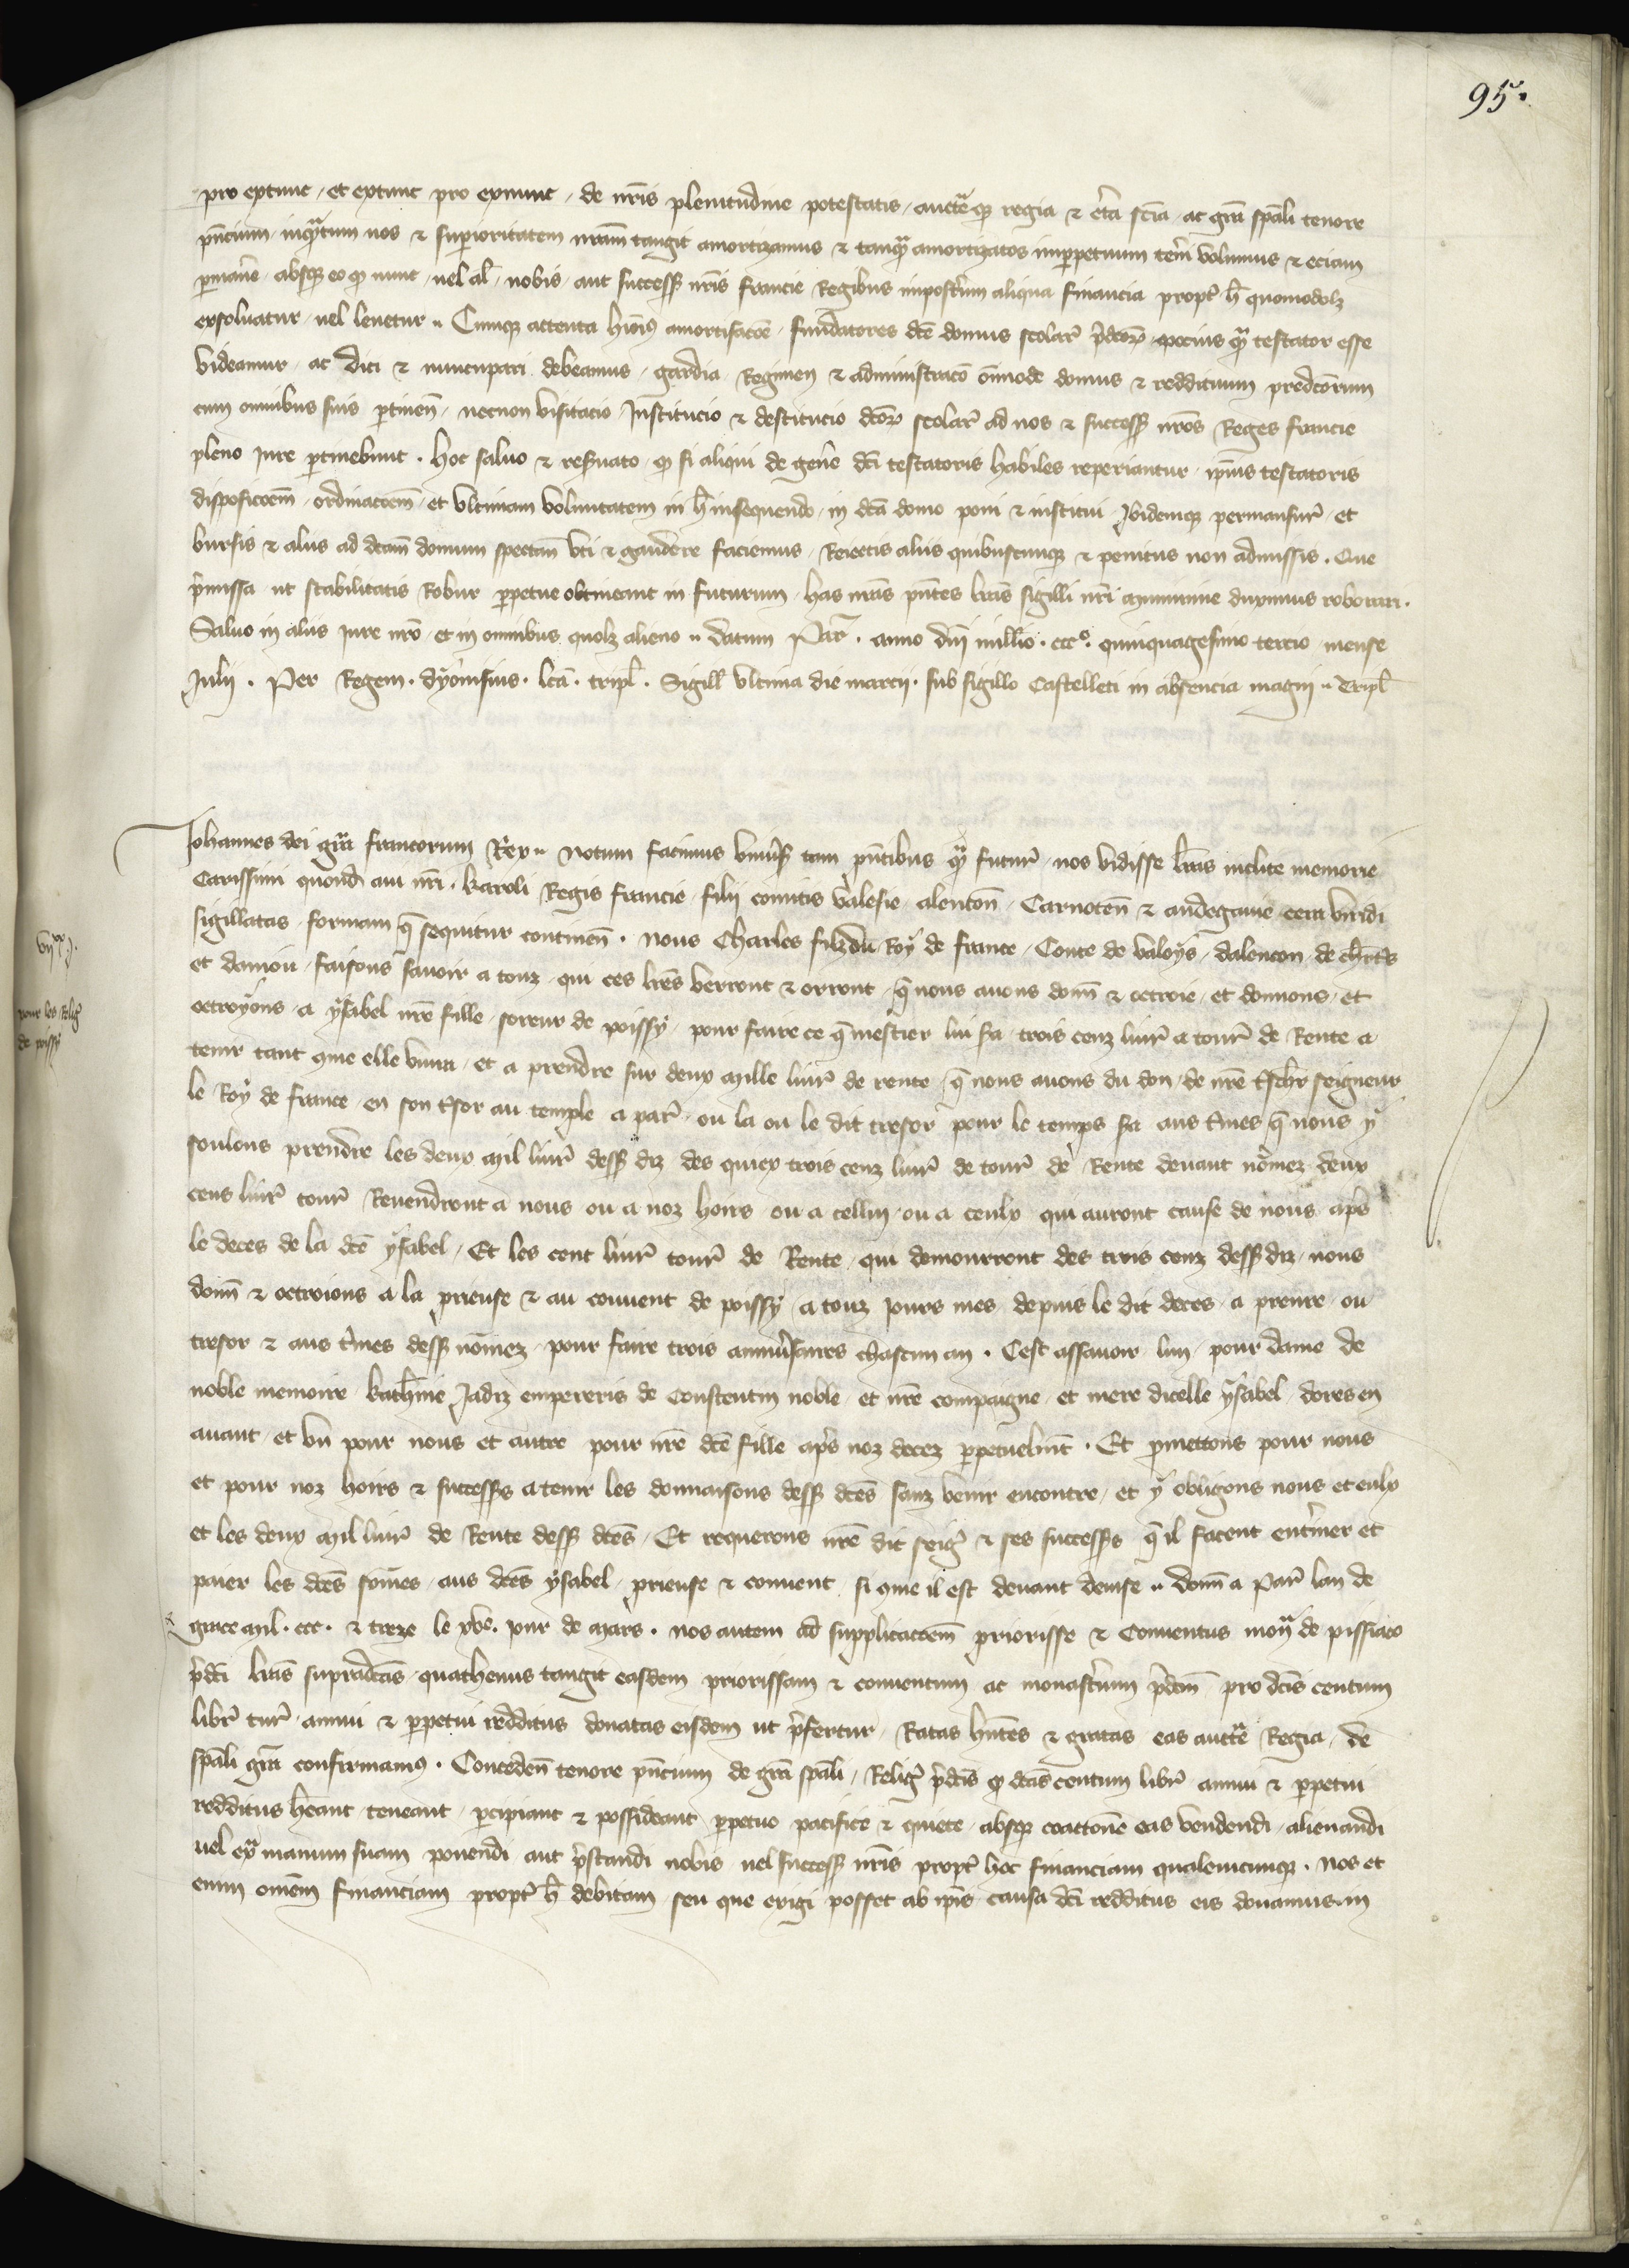 95.
pro extunc, et extunc pro exnunc, de nr̃is plenitudine potestatis, auctẽq regia & c̃ta scĩa, ac gr̃a spãli tenore
pñcium, inqᵃtum nos & superioritatem nrãm tangit amortizamus & tanqᵃ amortizatos imperpetuum teñi volumus & eciam
permañe, absq eo q nunc, uel al̃, nobis, aut success nr̃is francie Regibus impost̃um aliqua financia propt̃ h̃ quomodolz
exsoluatur, uel leuetur. Cumq attenta hiõi amortisacõe, fundatores dc̃e domus scolar̃ p̃dcõr pocius qᵃ testator esse
videamur, ac dici & nuncupari debeamus, gardia, Regimen & administracõ õimode domus & reddituum predcõrum
cum omnibus suis pertineñ, necnon visitacio Institucio & destitucio dcõr scolar̃ ad nos & success nr̃os Reges francie
pleno iure pertinebunt. Hoc saluo & res̃uato, q si aliqui de geñe dc̃i testatoris habiles reperiantur, ip̃ius testatoris
disposicõem, ordinacõem, et vltimam voluntatem in h̃ insequendo, in dc̃a domo poni & institui, Ibidemq permansur̃, et
bursis & aliis ad dc̃am domum spectañ vti & gaudere faciemus, Reiectis aliis quibuscunq & penitus non admissis. Que
p̃missa ut stabilitatis Robur perpetue obtineant in futurum, has nr̃as pñtes lr̃as sigilli nr̃i munimine duximus roborari.
Saluo in aliis iure nr̃o, et in omnibus quolz alieno. Datum Par̃. anno dñi mill̃io. cccº. quinquagesimo tercio mense
Julii. Per Regem. dyonisius. lc̃a. tripl̃. Sigill̃ vltima die marcii. sub sigillo Castelleti in absencia magni. Tripl̃
Johannes dei gr̃a francorum Rex. Notum facimus vniũs tam pñtibus qᵃ futur̃, nos vidisse lr̃as inclite memorie
Carissimi quond̃ aui nr̃i. Karoli Regis francie filii comitis valesie alenconñ Carnoteñ & andegauie cera viridi
sigillatas, formam q̃ sequitur contineñ. Nous Charles filz du Roy de france, Conte de valoys, dalencon, de ch̃rt̃s
et daniou, faisons sauoir a touz, qui ces lr̃es verront & orront, q̃ nous auons doñ & octroie, et donnons, et
octroyons, a ysabel nr̃e fille, soreur de poissy, pour faire ce q̃ mestier lui sa, trois cenz liur̃ a tour̃ de Rente a
tenir tant que elle viura, et a prendre sur deux mille liur̃ de rente, q̃ nous auons du don, de nr̃e tsch̃r seigneur
le Roy de france, en son t̃sor au temple a par̃, ou la ou le dit tresor pour le temps sa aus t̃mes q̃ nous y
soulons prendre les deux mil liur̃ dess diz des quiex trois cenz liur̃ de tour̃ de Rente deuant nõmez deux
cens liur̃ tour̃ Reuendront a nous ou a noz hoirs ou a cellui ou a ceulx qui auront cause de nous ap̃s
le deces de la dc̃e ysabel, Et les cent liur̃ tour̃ de Rente, qui demourront des trois cenz dess diz, nous
doñ & octroions a la prieuse & au couuent de poissy, a touz iours mes, depuis le dit deces, a prenre, ou
tresor & aus t̃mes dess nõmez, pour faire trois anniũsaires chascun an. Cest assauoir lun, pour dame de
noble memoire, Kath̃ine Jadiz empereris de Constentin noble, et nr̃e compaigne, et mere dicelle ysabel, dores en
auant, et vn pour nous et autre pour nr̃e dc̃e fille ap̃s noz decez perpetuelmt̃. Et p̃mettons pour nous
et pour noz hoirs & success̃s a tenir les donnaisons dess dc̃es sanz venir encontre, et y obligons nous et eulx
et les deux mil liur̃ de Rente dess dc̃es, Et requerons nr̃e dit seig̃ & ses success̃s q̃ il facent ent̃iner et
paier les dc̃es sõmes, aus dc̃es ysabel, prieuse & couuent, si que il est deuant deuise. Doñ a Par̃ lan de
grace mil. ccc. & treze le xve. iour de mars. Nos autem ad supplicacõem priorisse & Conuentus moñ de pissiaco
p̃dc̃i lr̃as supradc̃as, quathenus tangit easdem priorissam & conuentum ac monast̃ium p̃dc̃m pro dc̃is centum
libr̃ tur̃, annui & perpetui redditus donatas eisdem ut p̃fertur, Ratas hñtes & gratas eas auctẽ Regia, de
sp̃ali gr̃a confirmamꝰ. Concedeñ tenore pñcium de gr̃a sp̃ali, Relig̃ p̃dc̃is q dc̃as centum libr̃ annui & perpetui
redditus hẽant, teneant, percipiant & possideant, perpetuo pacifice & quiete, absq coactione eas vendendi, alienandi
uel exᵃ manum suam ponendi aut p̃standi nobis uel success nr̃is propt̃ hoc financiam qualemcunq. Nos et
enim om̃em financiam propt̃ h̃ debitam seu que exigi posset ab ip̃is causa dc̃i redditus eis donamus. in
vijˣˣ j.
pour les Relig̃
de poissy